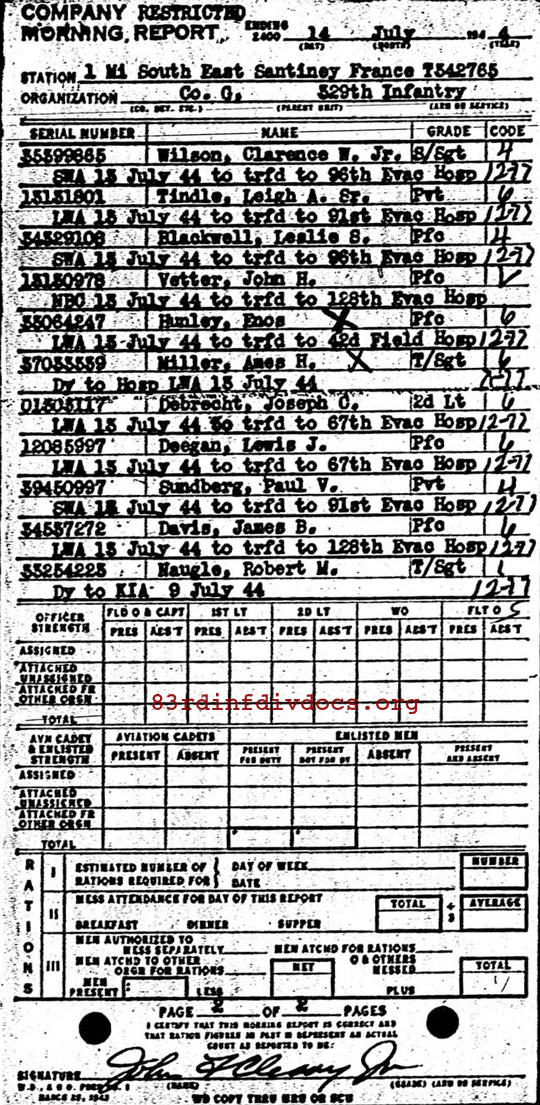 COMPANY RESTRICTED
MORNING REPORT ENDING 2400 14 July 194 4
(DAY) (MONTH) (YEAR)
STATION 1 Mi South East Santiney France T542765
ORGANIZATION Co. G, 329th Infantry
(CO. DET. ETC.) (PARENT UNIT) (ARM OR SERVICE)
SERIAL NUMBER NAME GRADE CODE
35399865 Wilson, Clarence W. Jr. S/Sgt 4
SWA 13 July 44 to trfd to 96th Evac Hosp 12-77
13131801 Tindle, Leigh A. Sr. Pvt 6
LWA 13 July 44 to trfd to 91st Evac Hosp 12-77
34329108 Blackwell, Leslie S. Pfc 4
SWA 13 July 44 to trfd to 96th Evac Hosp 12-77
13130978 Vetter, John H. Pfc
NBC 13 July 44 to trfd to 128th Evac Hosp
33064247 Hunley, Enos X Pfc 6
LWA 13 July 44 to trfd to 42d Field Hosp 12-77
37033339 Miller, Ames H. X T/Sgt 6
Dy to Hosp LWA 13 July 44
01303117 Debrecht, Joseph C. 2d Lt 6
LWA 13 July 44 to trfd to 67th Evac Hosp 12-77
12085997 Deegan, Lewis J. Pfc 6
LWA 13 July 44 to trfd to 67th Evac Hosp 12-77
39450997 Sundberg, Paul V. Pvt 4
SWA 13 July 44 to trfd to 91st Evac Hosp 12-77
34537272 Davis, James B. Pfc 6
LWA 13 July 44 to trfd to 128th Evac Hosp 12-77
35254225 Naugle, Robert M. T/Sgt 1
Dy to KIA 9 July 44 12-77
OFFICER STRENGTH FLD O & CAPT 1ST LT 2D LT WO FLT O 5
PRES ABS'T PRES ABS'T PRES ABS'T PRES ABS'T PRES ABS'T
ASSIGNED
ATTACHED UNASSIGNED
ATTACHED FR OTHER ORGN
83rdinfdivdocs.org
TOTAL
AVN CADET & ENLISTED STRENGTH AVIATION CADETS ENLISTED MEN
PRESENT ABSENT PRESENT FOR DUTY PRESENT NOT FOR DY ABSENT PRESENT AND ABSENT
ASSIGNED
ATTACHED UNASSIGNED
ATTACHED FR OTHER ORGN
TOTAL
RATIONS
I ESTIMATED NUMBER OF RATIONS REQUIRED FOR DAY OF WEEK DATE NUMBER
II MESS ATTENDANCE FOR DAY OF THIS REPORT TOTAL ÷ 3 AVERAGE
BREAKFAST DINNER SUPPER
III MEN AUTHORIZED TO MESS SEPARATELY MEN ATCHD FOR RATIONS
MEN ATCHD TO OTHER ORGN FOR RATIONS NET O & OTHERS MESSED TOTAL
MEN PRESENT LESS PLUS
PAGE 2 OF 2 PAGES
I CERTIFY THAT THIS MORNING REPORT IS CORRECT AND
THAT RATION FIGURES IN PART III REPRESENT AN ACTUAL
COUNT AS REPORTED TO ME:
SIGNATURE John F Cleary Jr
W.D., A G O. FORM NO. 1 (NAME) (GRADE) (ARM OR SERVICE)
MARCH 25, 1943
WD COPY THRU MRU OR SCU